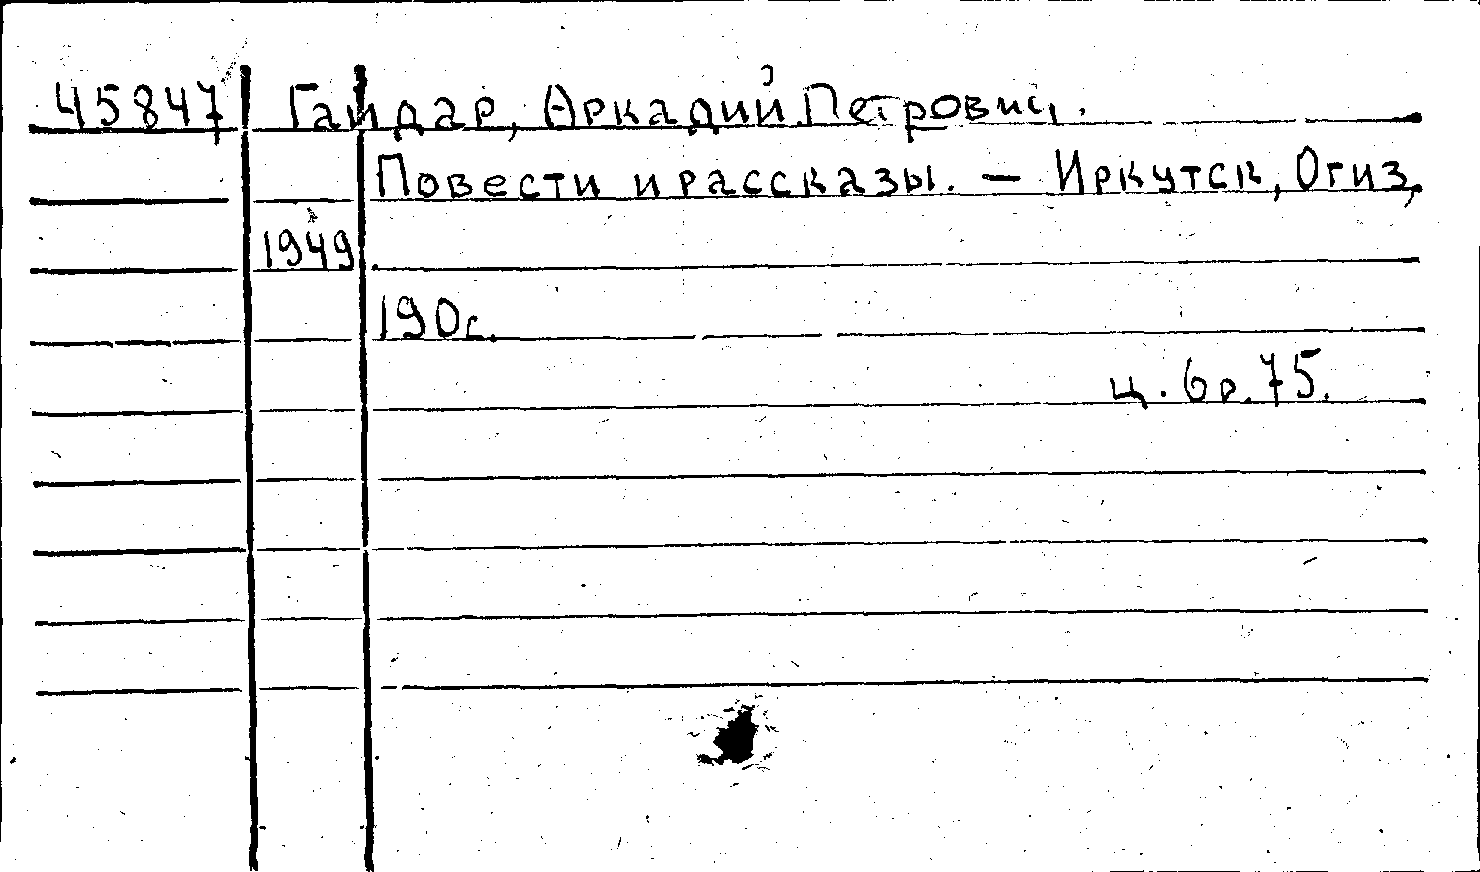 45847 Гайдар, Аркадий Петрович.
Повести и рассказы. — Иркутск, Огиз,
1949.
190с.
ц. 6р. 75.